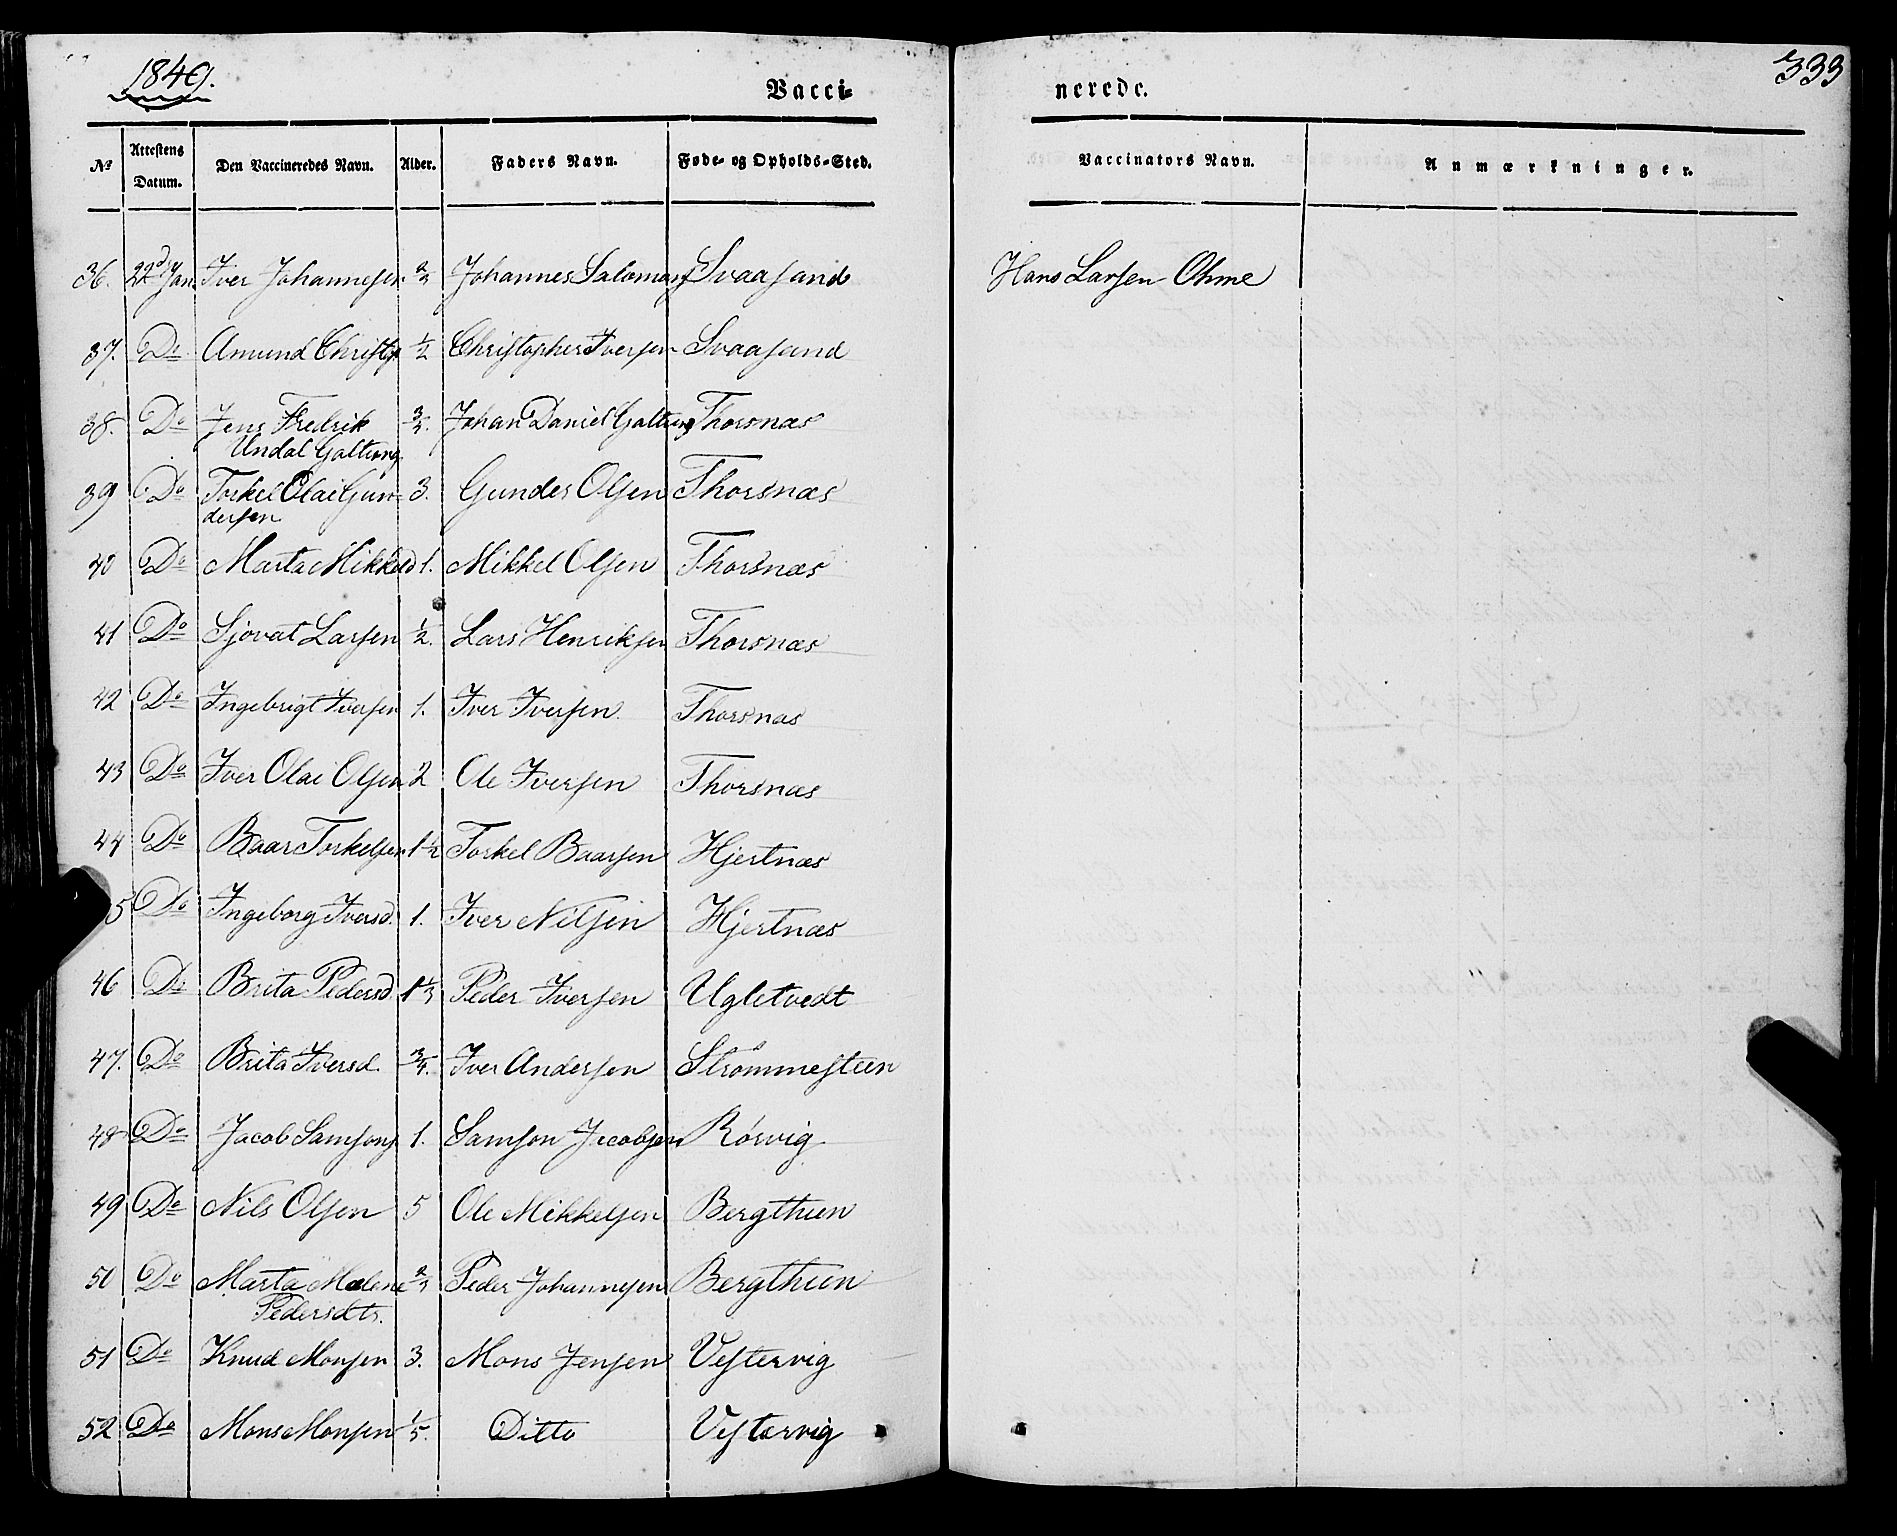 1849.
333
Vacci-
nerede.
No
Attestens Datum.
Den Vaccineredes Navn.
Alder.
Faders Navn.
Føde- og Opholds-Sted.
Vaccinators Navn.
Anmærkninger.
36. 22d Jan Iver Johannesen 2/3 Johannes Salomons Svaasand Hans Larsen Ohme
37. Do Amund Christop 1/2 Christopher Iversen Svaasand
38. Do Jens Fredrik 3/4. Johan Daniel Galtung Thorsnæs
Undal Galtung
39 Do Torkel Olai Gun- 3. Gunder Olsen Thorsnæs
dersen
40 Do Marta Mikkelsd 1. Mikkel Olsen Thorsnæs
41 Do Sjovat Larsen 1/2. Lars Henriksen Thorsnæs
42 Do Ingebrigt Iversen 1. Iver Iversen. Thorsnæs
43 Do Iver Olai Olsen 2 Ole Iversen Thorsnæs
44 Do Baar Torkelsen 1 1/2 Torkel Baarsen Hjertnæs
5 Do Ingeborg Iversd. 1. Iver Nilsen Hjertnæs
46 Do Brita Pedersd. 1 1/3 Peder Iversen Ugletvedt
47. Do Brita Iversd. 3/4. Iver Andersen Strømmesteen
48 Do Jacob Samsons 1. Samson Jacobsen Rörvig
49 Do Nils Olsen 5 Ole Mikkelsen Bergthun
50 Do Marta Malene 2/3 Peder Johannesen Bergthun
Pedersdtr.
51 Do Knud Monsen 3. Mons Jensen Vestervig
52 Do Mons Monsen 1/5. Ditto Vestervig